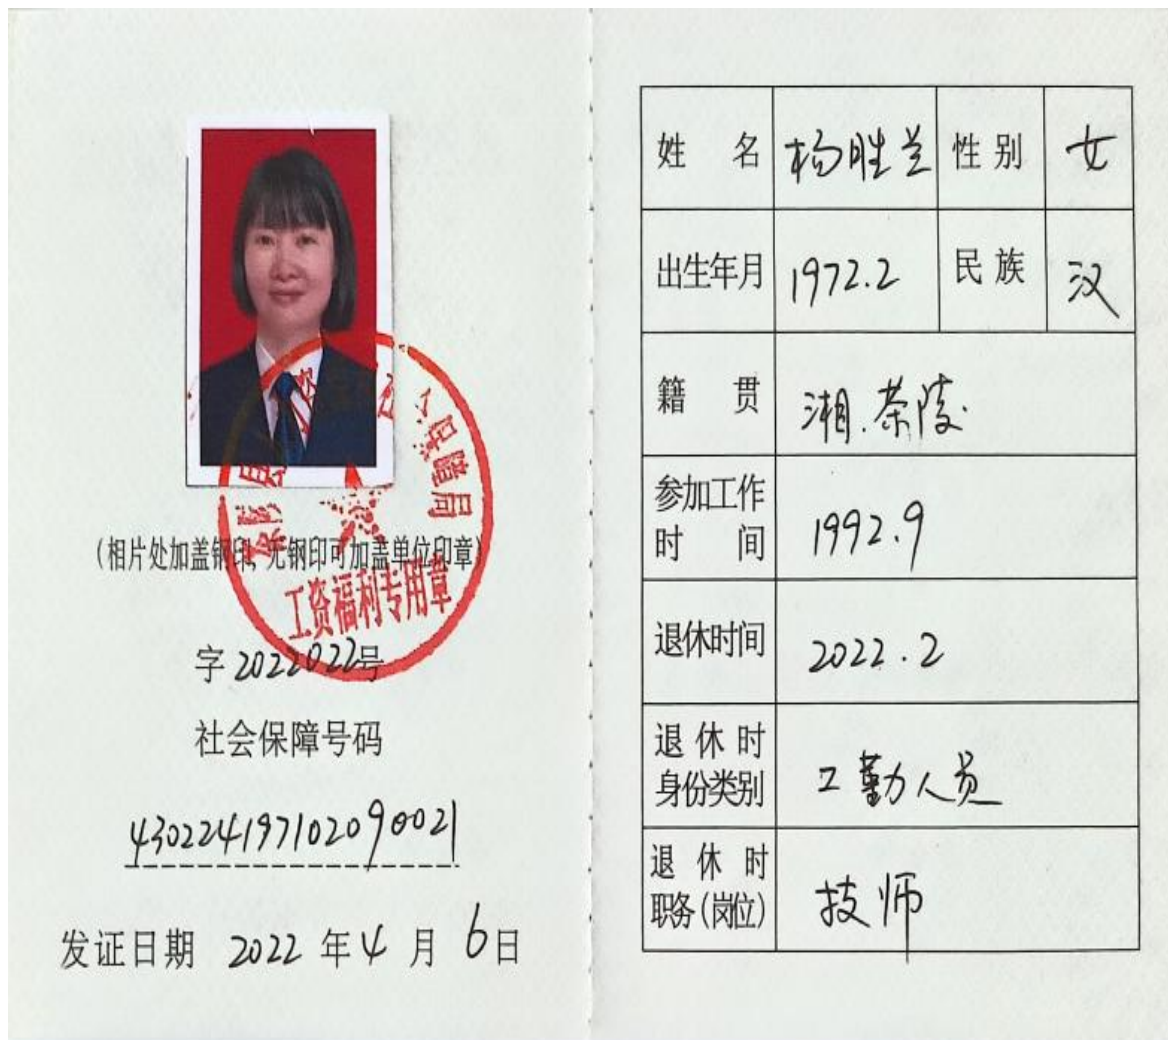 （相片处加盖钢印，无钢印可加盖单位印章）
工资福利专用章
字2022022号
社会保障号码
430224197102090021
发证日期 2022 年 4 月 6 日
姓 名 杨胜兰 性别 女
出生年月 1972.2 民族 汉
籍 贯 湘.茶陵.
参加工作
时 间 1992.9
退休时间 2022.2
退休时
身份类别 工勤人员
退休时
职务（岗位） 技师